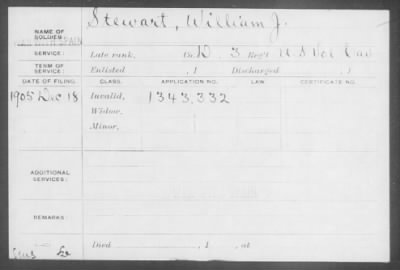 NAME OF SOLDIER: Stewart, William J.
SERVICE: Late rank, Co. D 3 Reg't U S Vol Cav
TERM OF SERVICE: Enlisted , 1 Discharged , 1
DATE OF FILING. CLASS. APPLICATION NO. LAW. CERTIFICATE NO.
1905 Dec 18 Invalid, 1343,332
Widow,
Minor,
ADDITIONAL SERVICES:
REMARKS:
Died , 1 , at